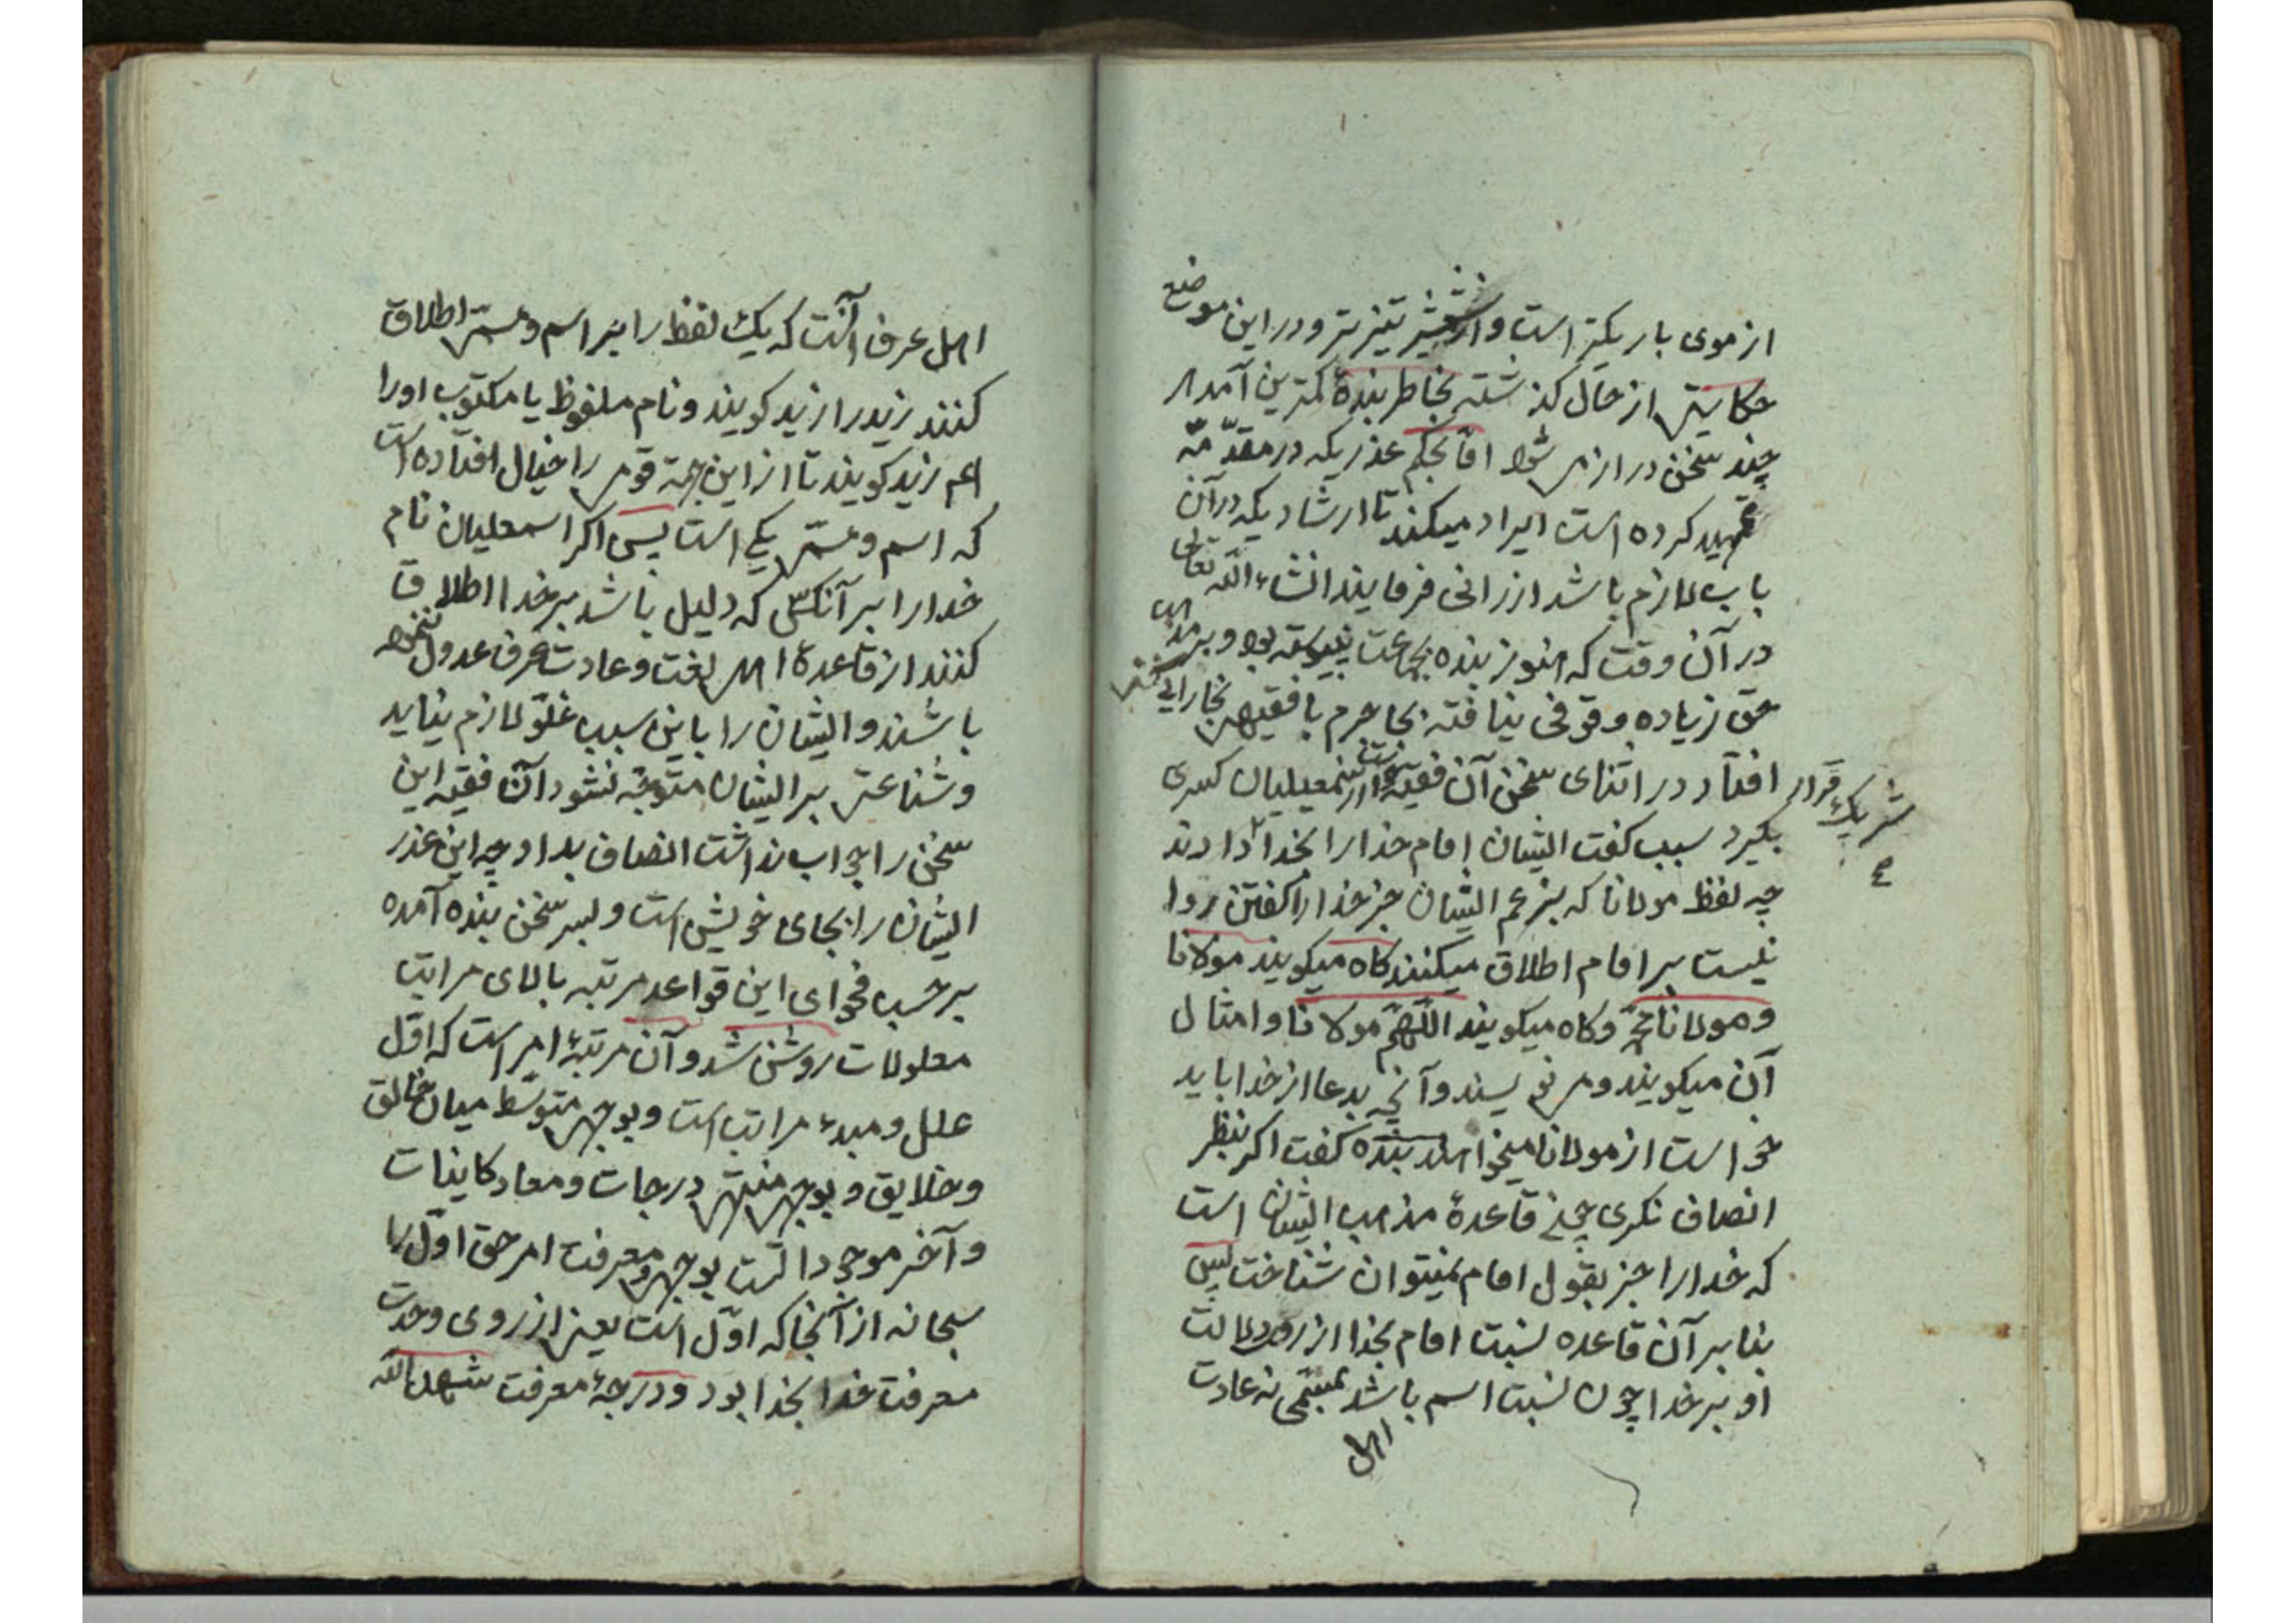 از موی باریکتر است و از شمشیر تیزتر و در این موضع
حکایتی از حال گذشته بخاطر بندهٔ کمترین آمد هر
چند سخن دراز می شود اما بحکم عذریکه در مقدّمه
تمهید کرده است ایراد میکند تا ارشادیکه در آن
باب لازم باشد ارزانی فرمایند انشاء الله تعالی
در آن وقت که هنوز بنده بجماعت نپیوسته بود و بر مذهب
حق زیاده وقوفی نیافته بجاجرم با فقیهی بخارایی
افتاد در اثنای سخن آن فقیه از اسمعیلیان کسری
شریک قرار
بگیرد سبب گفت ایشان امام خدا را بخدا دارند
چه لفظ مولانا که بزعم ایشان جز خدا را گفتن روا
نیست بر امام اطلاق میکنند کاه میکویند مولانا
و مولانا محمد و کاه میکویند اللّهم مولانا و امثال
آن میکویند و می نویسند و آنچه بدعا از خدا باید
خواست از مولانا میخواهند بنده کفت اکر بنظر
انصاف نکری چون قاعدهٔ مذهب ایشان است
که خدا را جز بقول امام نمیتوان شناخت پس
بنا بر آن قاعده نسبت امام بخدا از روی دلالت
او بر خدا چون نسبت اسم باشد بمسمّی نه عادت
اهل
اهل عرف آنست که یک لفظ را بر اسم و مسمّی اطلاق
کنند زید را زید کویند و نام ملفوظ یا مکتوب او را
هم زید کویند تا از این جهة قومی را خیال افتاده است
که اسم و مسمّی یکی است پس اکر اسمعلیان نام
خدا را بر آنکس که دلیل باشد بر خدا اطلاق
کنند از قاعدهٔ اهل لغت و عادت عرف عدول ننموده
باشند و ایشان را باین سبب غلوّ لازم نیاید
و شناعتی بر ایشان متوجّه نشود آن فقیه این
سخن را جواب نداشت انصاف بداد چه این عذر
ایشان را بجای خویش است و بسر سخن بنده آمده
بر حسب فحوای این قواعد مرتبه بالای مراتب
معلولات روشن شد و آن مرتبهٔ امر است که اوّل
علل و مبدء مراتب است و بوجهی متوسّط میان خالق
و خلایق و بوجهی منتهی درجات و معاد کاینات
و آخر موجودات است بوجهی و معرفت امر حق اوّل را
سبحانه از آنجا که اوّل است یعنی از روی وحدت
معرفت خدا بخدا بود و درجهٔ معرفت شهد الله